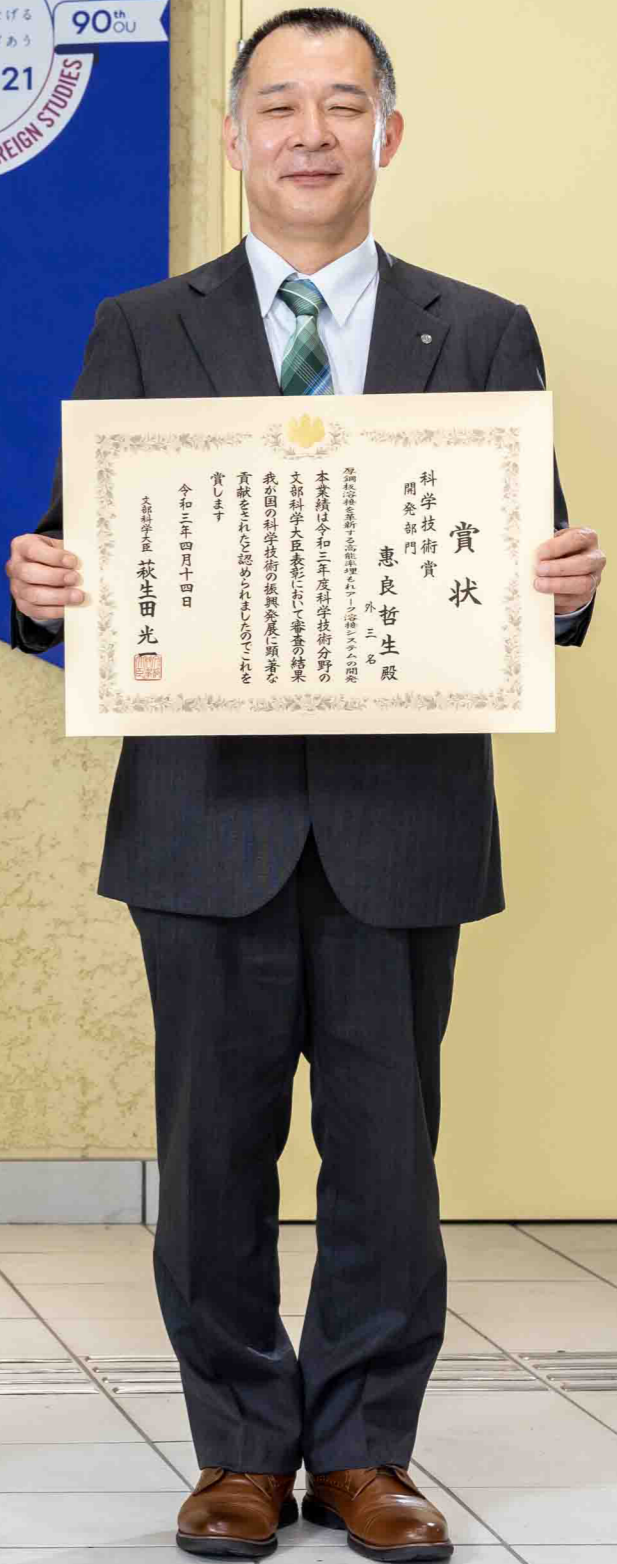 90th
OU
21
REIGN STUDIES
賞状
科学技術賞
開発部門
恵良哲生殿
外三名
厚鋼板溶接を革新する高能率埋もれアーク溶接システムの開発
本業績は令和三年度科学技術分野の
文部科学大臣表彰において審査の結果
我が国の科学技術の振興発展に顕著な
貢献をされたと認められましたのでこれを
賞します
令和三年四月十四日
文部科学大臣 萩生田光一